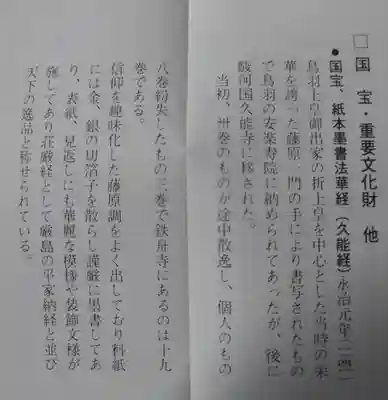 □ 国宝・重要文化財 他
●国宝、紙本墨書法華経（久能経）永治元年（一一四一）
鳥羽上皇御出家の折上皇を中心とした当時の栄
華を誇った藤原一門の手により書写されたもの
で鳥羽の安楽寿院に納められてあったが、後に
駿河国久能寺に移された。
当初、卅巻のものが途中散逸し、個人のもの
八巻紛失したもの三巻で鉄舟寺にあるのは十九
巻である。
信仰を趣味化した藤原調をよく出しており料紙
には金、銀の切箔子を散らし謹厳に墨書してあ
り、表紙、見返しにも華麗な模様や装飾文様が
施してあり荘厳経として厳島の平家納経と並び
天下の逸品と称せられている。